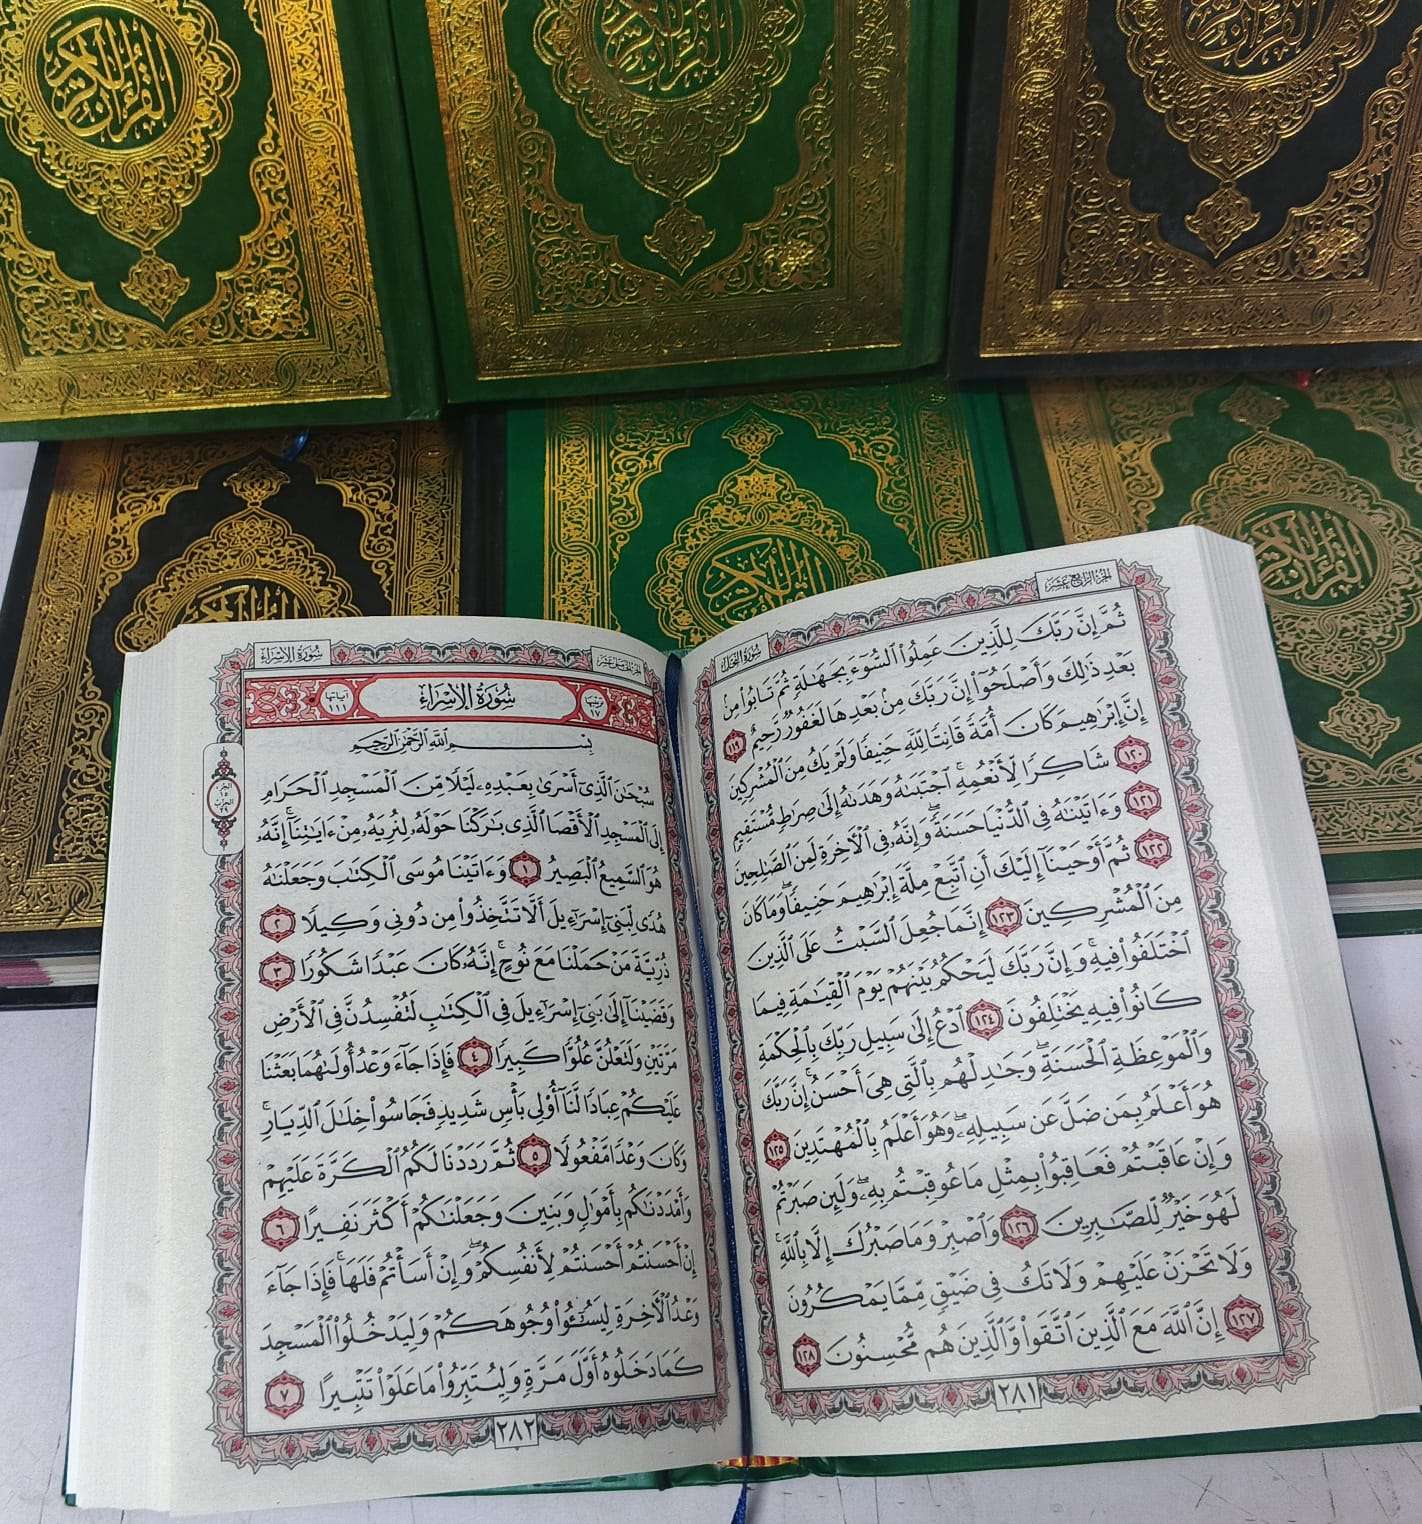 القرآن الكريم
القرآن الكريم
القرآن الكريم
القرآن الكريم
القرآن الكريم
القرآن الكريم
الجزء الرابع عشر
سورة النحل
ثُمَّ إِنَّ رَبَّكَ لِلَّذِينَ عَمِلُوا۟ ٱلسُّوٓءَ بِجَهَـٰلَةٍ ثُمَّ تَابُوا۟ مِنۢ
بَعْدِ ذَٰلِكَ وَأَصْلَحُوٓا۟ إِنَّ رَبَّكَ مِنۢ بَعْدِهَا لَغَفُورٌ رَّحِيمٌ ١١٩
إِنَّ إِبْرَٰهِيمَ كَانَ أُمَّةً قَانِتًا لِّلَّهِ حَنِيفًا وَلَمْ يَكُ مِنَ ٱلْمُشْرِكِينَ
١٢٠ شَاكِرًا لِّأَنْعُمِهِ ۚ ٱجْتَبَىٰهُ وَهَدَىٰهُ إِلَىٰ صِرَٰطٍ مُّسْتَقِيمٍ
١٢١ وَءَاتَيْنَـٰهُ فِى ٱلدُّنْيَا حَسَنَةً ۖ وَإِنَّهُۥ فِى ٱلْـَٔاخِرَةِ لَمِنَ ٱلصَّـٰلِحِينَ
١٢٢ ثُمَّ أَوْحَيْنَآ إِلَيْكَ أَنِ ٱتَّبِعْ مِلَّةَ إِبْرَٰهِيمَ حَنِيفًا ۖ وَمَا كَانَ
مِنَ ٱلْمُشْرِكِينَ ١٢٣ إِنَّمَا جُعِلَ ٱلسَّبْتُ عَلَى ٱلَّذِينَ
ٱخْتَلَفُوا۟ فِيهِ ۚ وَإِنَّ رَبَّكَ لَيَحْكُمُ بَيْنَهُمْ يَوْمَ ٱلْقِيَـٰمَةِ فِيمَا
كَانُوا۟ فِيهِ يَخْتَلِفُونَ ١٢٤ ٱدْعُ إِلَىٰ سَبِيلِ رَبِّكَ بِٱلْحِكْمَةِ
وَٱلْمَوْعِظَةِ ٱلْحَسَنَةِ ۖ وَجَـٰدِلْهُم بِٱلَّتِى هِىَ أَحْسَنُ ۚ إِنَّ رَبَّكَ
هُوَ أَعْلَمُ بِمَن ضَلَّ عَن سَبِيلِهِۦ ۖ وَهُوَ أَعْلَمُ بِٱلْمُهْتَدِينَ ١٢٥
وَإِنْ عَاقَبْتُمْ فَعَاقِبُوا۟ بِمِثْلِ مَا عُوقِبْتُم بِهِۦ ۖ وَلَئِن صَبَرْتُمْ
لَهُوَ خَيْرٌ لِّلصَّـٰبِرِينَ ١٢٦ وَٱصْبِرْ وَمَا صَبْرُكَ إِلَّا بِٱللَّهِ ۚ
وَلَا تَحْزَنْ عَلَيْهِمْ وَلَا تَكُ فِى ضَيْقٍ مِّمَّا يَمْكُرُونَ
١٢٧ إِنَّ ٱللَّهَ مَعَ ٱلَّذِينَ ٱتَّقَوا۟ وَّٱلَّذِينَ هُم مُّحْسِنُونَ ١٢٨
٢٨١
الجزء الخامس عشر
سورة الإسراء
ترتيبها ١٧
سُورَةُ الإِسْرَاءِ
آياتها ١١١
بِسْمِ ٱللَّهِ ٱلرَّحْمَـٰنِ ٱلرَّحِيمِ
سُبْحَـٰنَ ٱلَّذِىٓ أَسْرَىٰ بِعَبْدِهِۦ لَيْلًا مِّنَ ٱلْمَسْجِدِ ٱلْحَرَامِ
إِلَى ٱلْمَسْجِدِ ٱلْأَقْصَا ٱلَّذِى بَـٰرَكْنَا حَوْلَهُۥ لِنُرِيَهُۥ مِنْ ءَايَـٰتِنَآ ۚ إِنَّهُۥ
هُوَ ٱلسَّمِيعُ ٱلْبَصِيرُ ١ وَءَاتَيْنَا مُوسَى ٱلْكِتَـٰبَ وَجَعَلْنَـٰهُ
هُدًى لِّبَنِىٓ إِسْرَٰٓءِيلَ أَلَّا تَتَّخِذُوا۟ مِن دُونِى وَكِيلًا ٢
ذُرِّيَّةَ مَنْ حَمَلْنَا مَعَ نُوحٍ ۚ إِنَّهُۥ كَانَ عَبْدًا شَكُورًا ٣
وَقَضَيْنَآ إِلَىٰ بَنِىٓ إِسْرَٰٓءِيلَ فِى ٱلْكِتَـٰبِ لَتُفْسِدُنَّ فِى ٱلْأَرْضِ
مَرَّتَيْنِ وَلَتَعْلُنَّ عُلُوًّا كَبِيرًا ٤ فَإِذَا جَآءَ وَعْدُ أُولَىٰهُمَا بَعَثْنَا
عَلَيْكُمْ عِبَادًا لَّنَآ أُو۟لِى بَأْسٍ شَدِيدٍ فَجَاسُوا۟ خِلَـٰلَ ٱلدِّيَارِ ۚ
وَكَانَ وَعْدًا مَّفْعُولًا ٥ ثُمَّ رَدَدْنَا لَكُمُ ٱلْكَرَّةَ عَلَيْهِمْ
وَأَمْدَدْنَـٰكُم بِأَمْوَٰلٍ وَبَنِينَ وَجَعَلْنَـٰكُمْ أَكْثَرَ نَفِيرًا ٦
إِنْ أَحْسَنتُمْ أَحْسَنتُمْ لِأَنفُسِكُمْ ۖ وَإِنْ أَسَأْتُمْ فَلَهَا ۚ فَإِذَا جَآءَ
وَعْدُ ٱلْـَٔاخِرَةِ لِيَسُـۥٓـُٔوا۟ وُجُوهَكُمْ وَلِيَدْخُلُوا۟ ٱلْمَسْجِدَ
كَمَا دَخَلُوهُ أَوَّلَ مَرَّةٍ وَلِيُتَبِّرُوا۟ مَا عَلَوْا۟ تَتْبِيرًا ٧
الجزء
١٥
الحزب
٢٩
٢٨٢